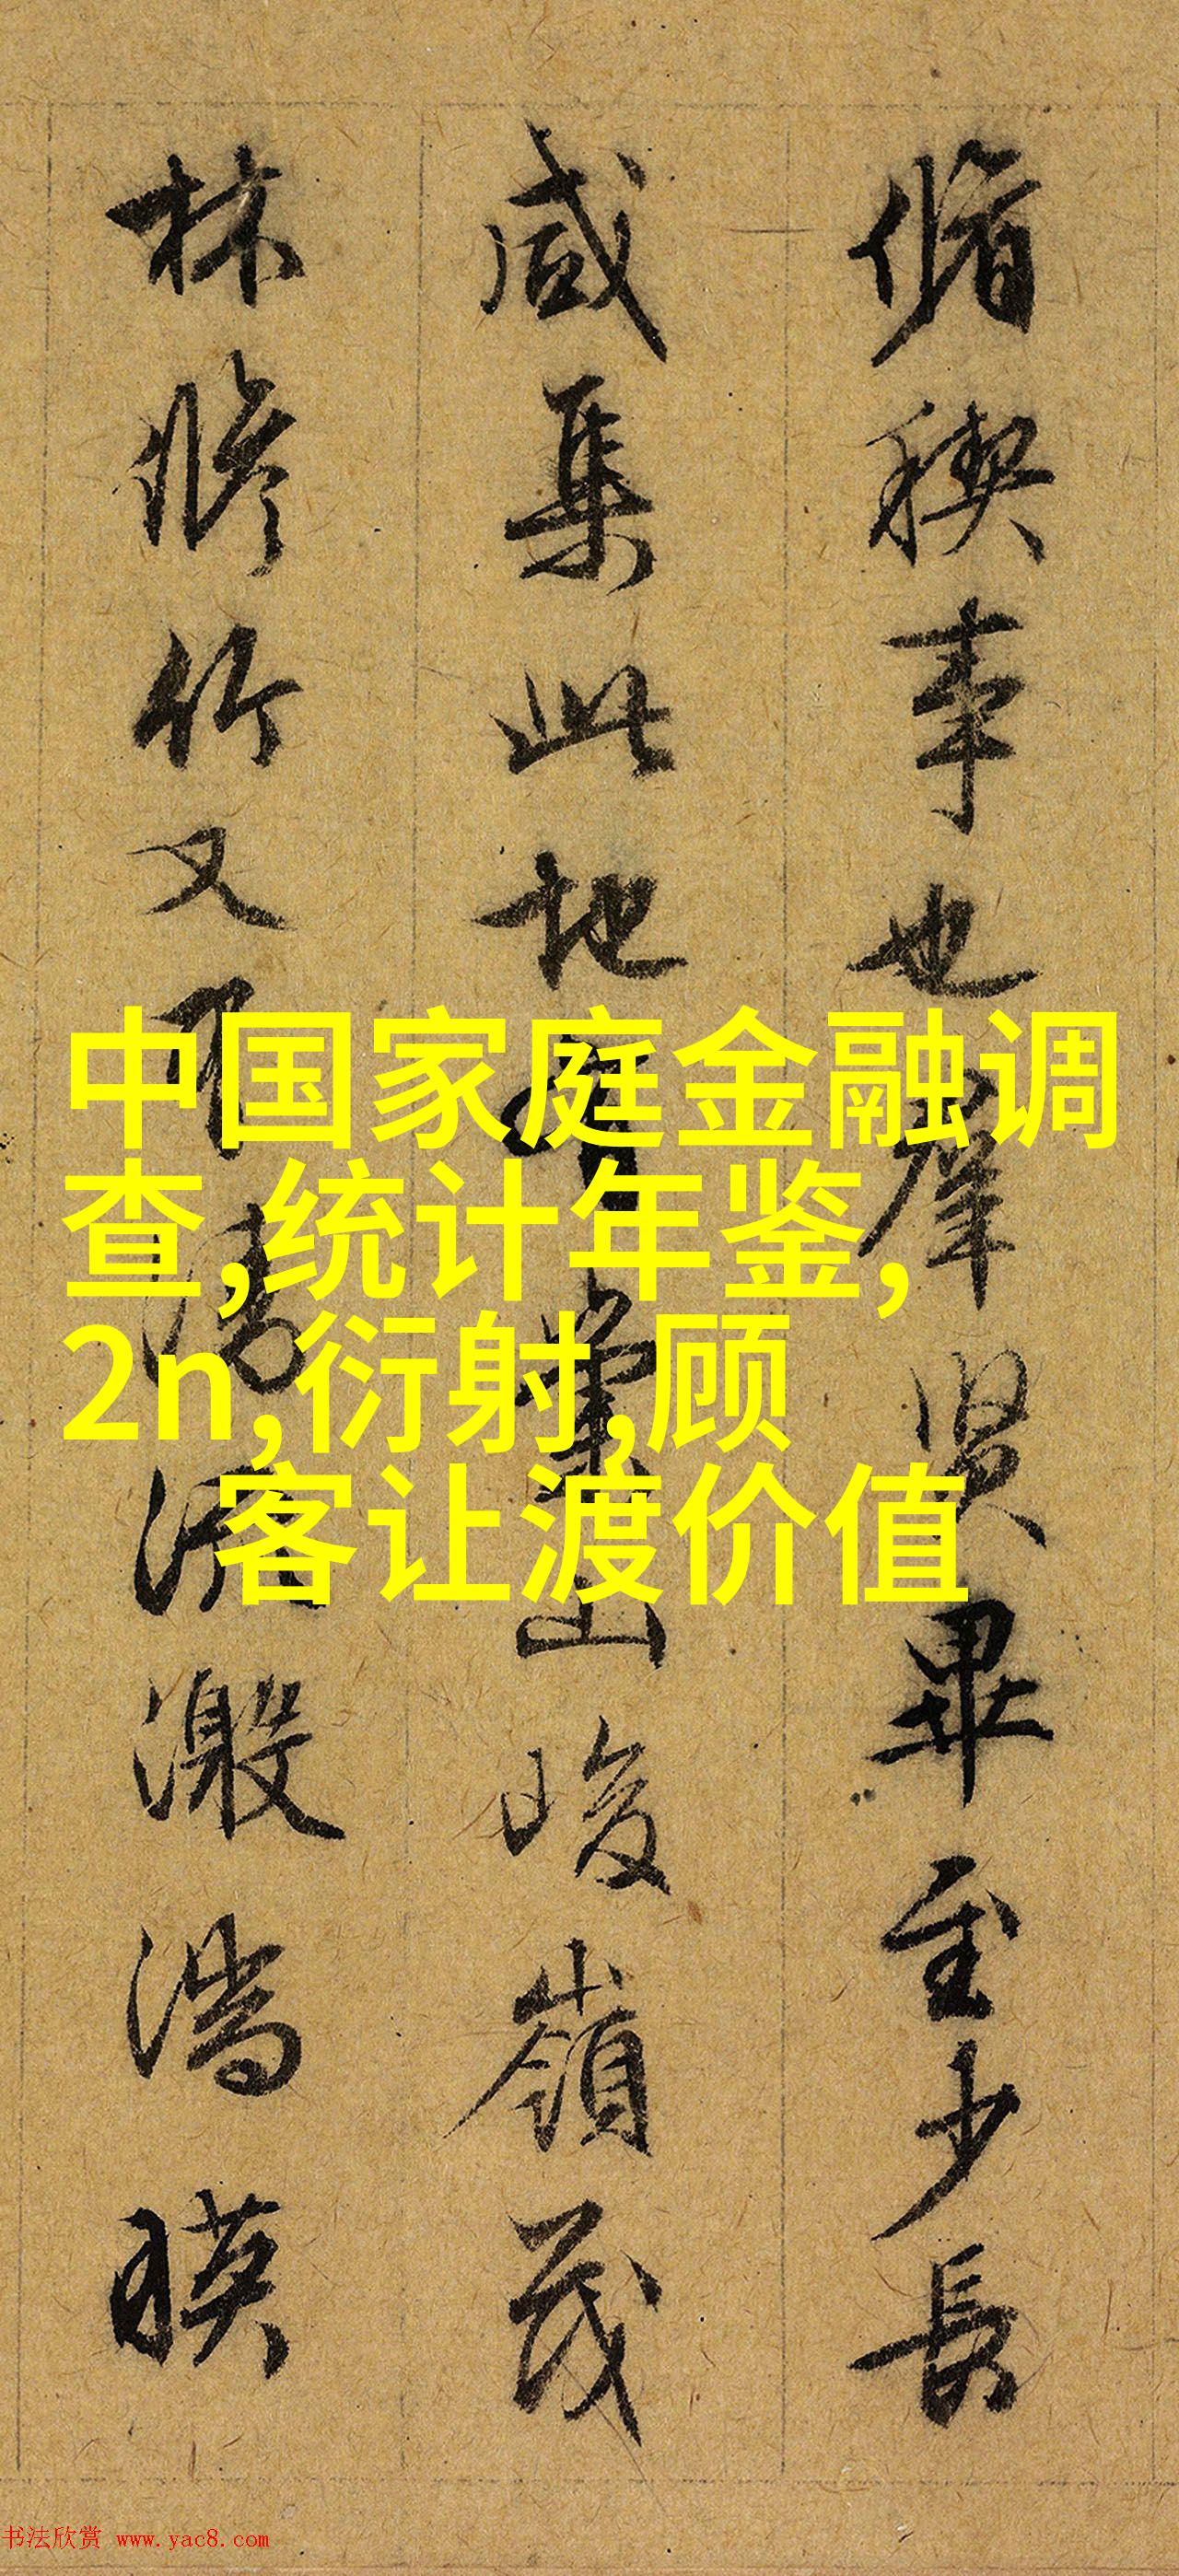 脩稧事也羣賢畢至少長
咸集此地有崇山峻嶺茂
林脩竹又有清流激湍暎
中国家庭金融调
查,统计年鉴,
2n,衍射,顾
客让渡价值
书法欣赏 www.yac8.com